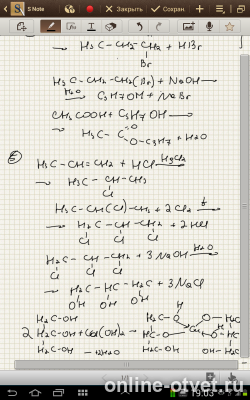 S Note
Закрыть
Сохран
→ H₃C-CH₂-CH₂ + HBr
Br
H₃C-CH₂-CH₂(Br) + NaOH →
H₂O → C₃H₇OH + NaBr
CH₃COOH + C₃H₇OH →
→ H₃C-C
O
O-C₃H₇ + H₂O
H₃C-CH=CH₂ + HCl HgCl₂
→ H₃C-CH-CH₃
Cl
H₃C-CH(Cl)-CH₃ + 2Cl₂ t
→ H₂C-CH-CH₂ + 2HCl
Cl Cl Cl
H₂C-CH-CH₂ + 3NaOH H₂O
Cl Cl Cl
→ H₂C-HC-H₂C + 3NaCl
OH OH OH
H₂C-OH
2 H₂C-OH + Cu(OH)₂
H₂C-OH
H
H₂C-O
O-H₂C
HC-O
Cu
H₂C-OH
OH-H₂C
19:03
online-otvet.ru